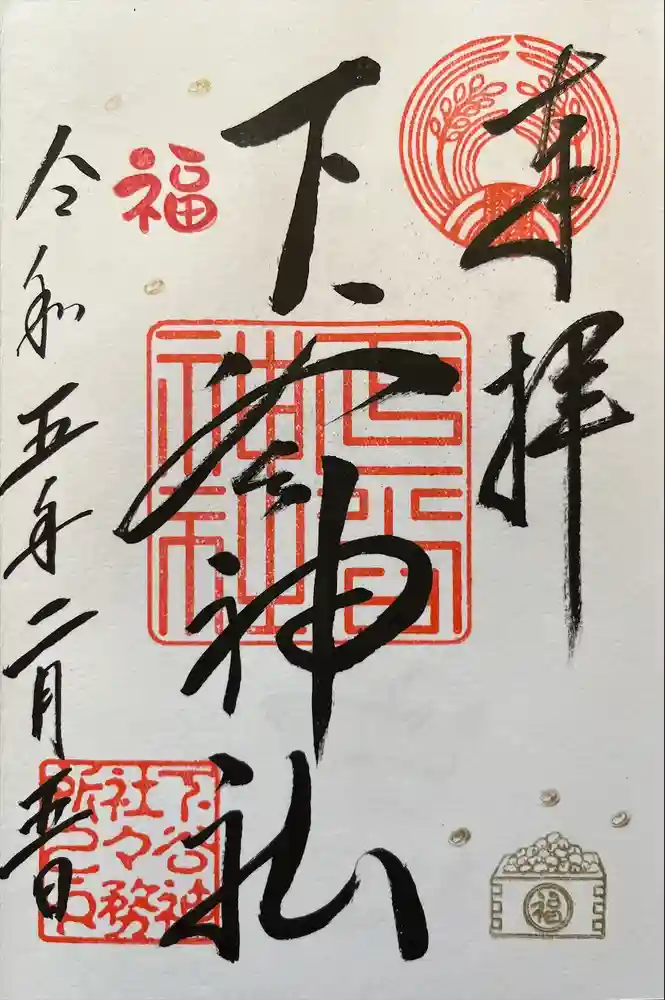 奉拝
下谷神社
下谷神社
福
令和五年二月五日
下谷神
社々務
所之印
福